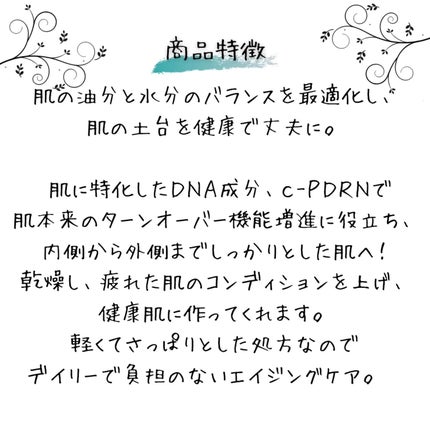 商品特徴
肌の油分と水分のバランスを最適化し、
肌の土台を健康で丈夫に。
肌に特化したDNA成分、c-PDRNで
肌本来のターンオーバー機能増進に役立ち、
内側から外側までしっかりとした肌へ!
乾燥し、疲れた肌のコンディションを上げ、
健康肌に作ってくれます。
軽くてさっぱりとした処方なので
デイリーで負担のないエイジングケア。